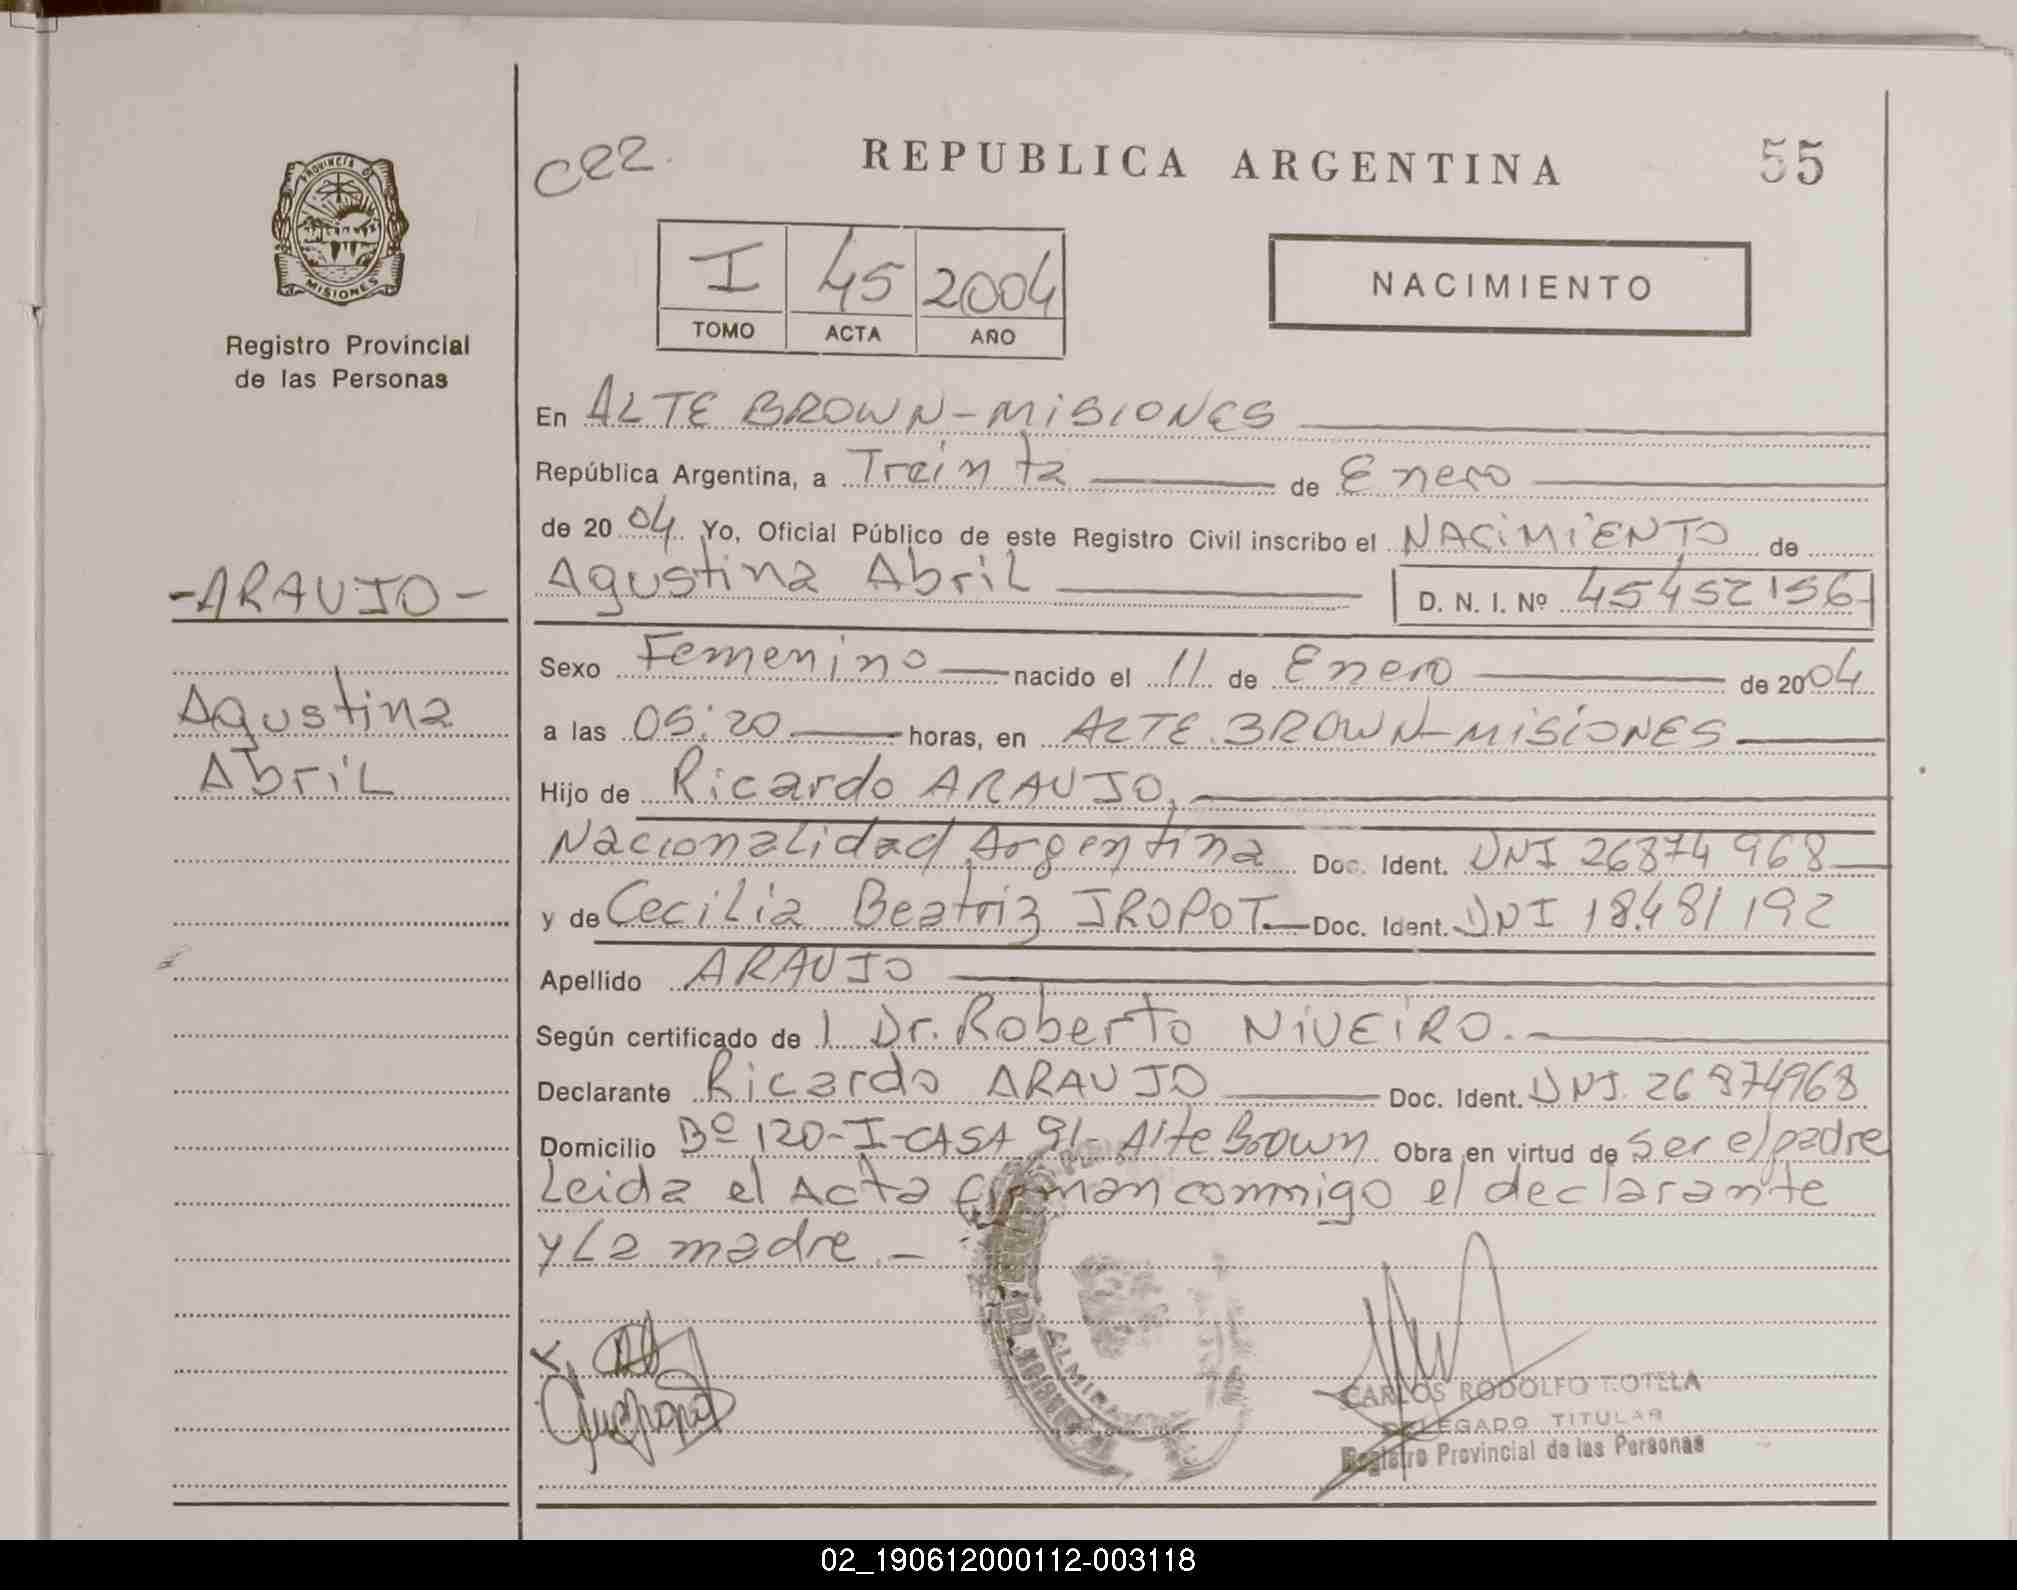 PROVINCIA DE
MISIONES
Registro Provincial
de las Personas
-ARAUJO-
Agustina
Abril
REPUBLICA ARGENTINA
55
I 45 2004
TOMO ACTA AÑO
NACIMIENTO
En ALTE BROWN-MISIONES
República Argentina, a Treinta de Enero
de 2004 Yo, Oficial Público de este Registro Civil inscribo el NACIMIENTO de
Agustina Abril D. N. I. Nº 45452156
Sexo Femenino nacido el 11 de Enero de 2004
a las 05:20 horas, en ALTE BROWN-MISIONES
Hijo de Ricardo ARAUJO,
Nacionalidad Argentina Doc. Ident. DNI 26874968
y de Cecilia Beatriz IROPOT Doc. Ident. DNI 18.481192
Apellido ARAUJO
Según certificado de 1 Dr. Roberto NIVEIRO.
Declarante Ricardo ARAUJO Doc. Ident. DNI. 26874968
Domicilio Bº 120-I-CASA 91- Alte Brown Obra en virtud de ser el padre
Leida el Acta firman conmigo el declarante
y La madre.-
CARLOS RODOLFO ROTELA
DELEGADO TITULAR
Registro Provincial de las Personas
02_190612000112-003118